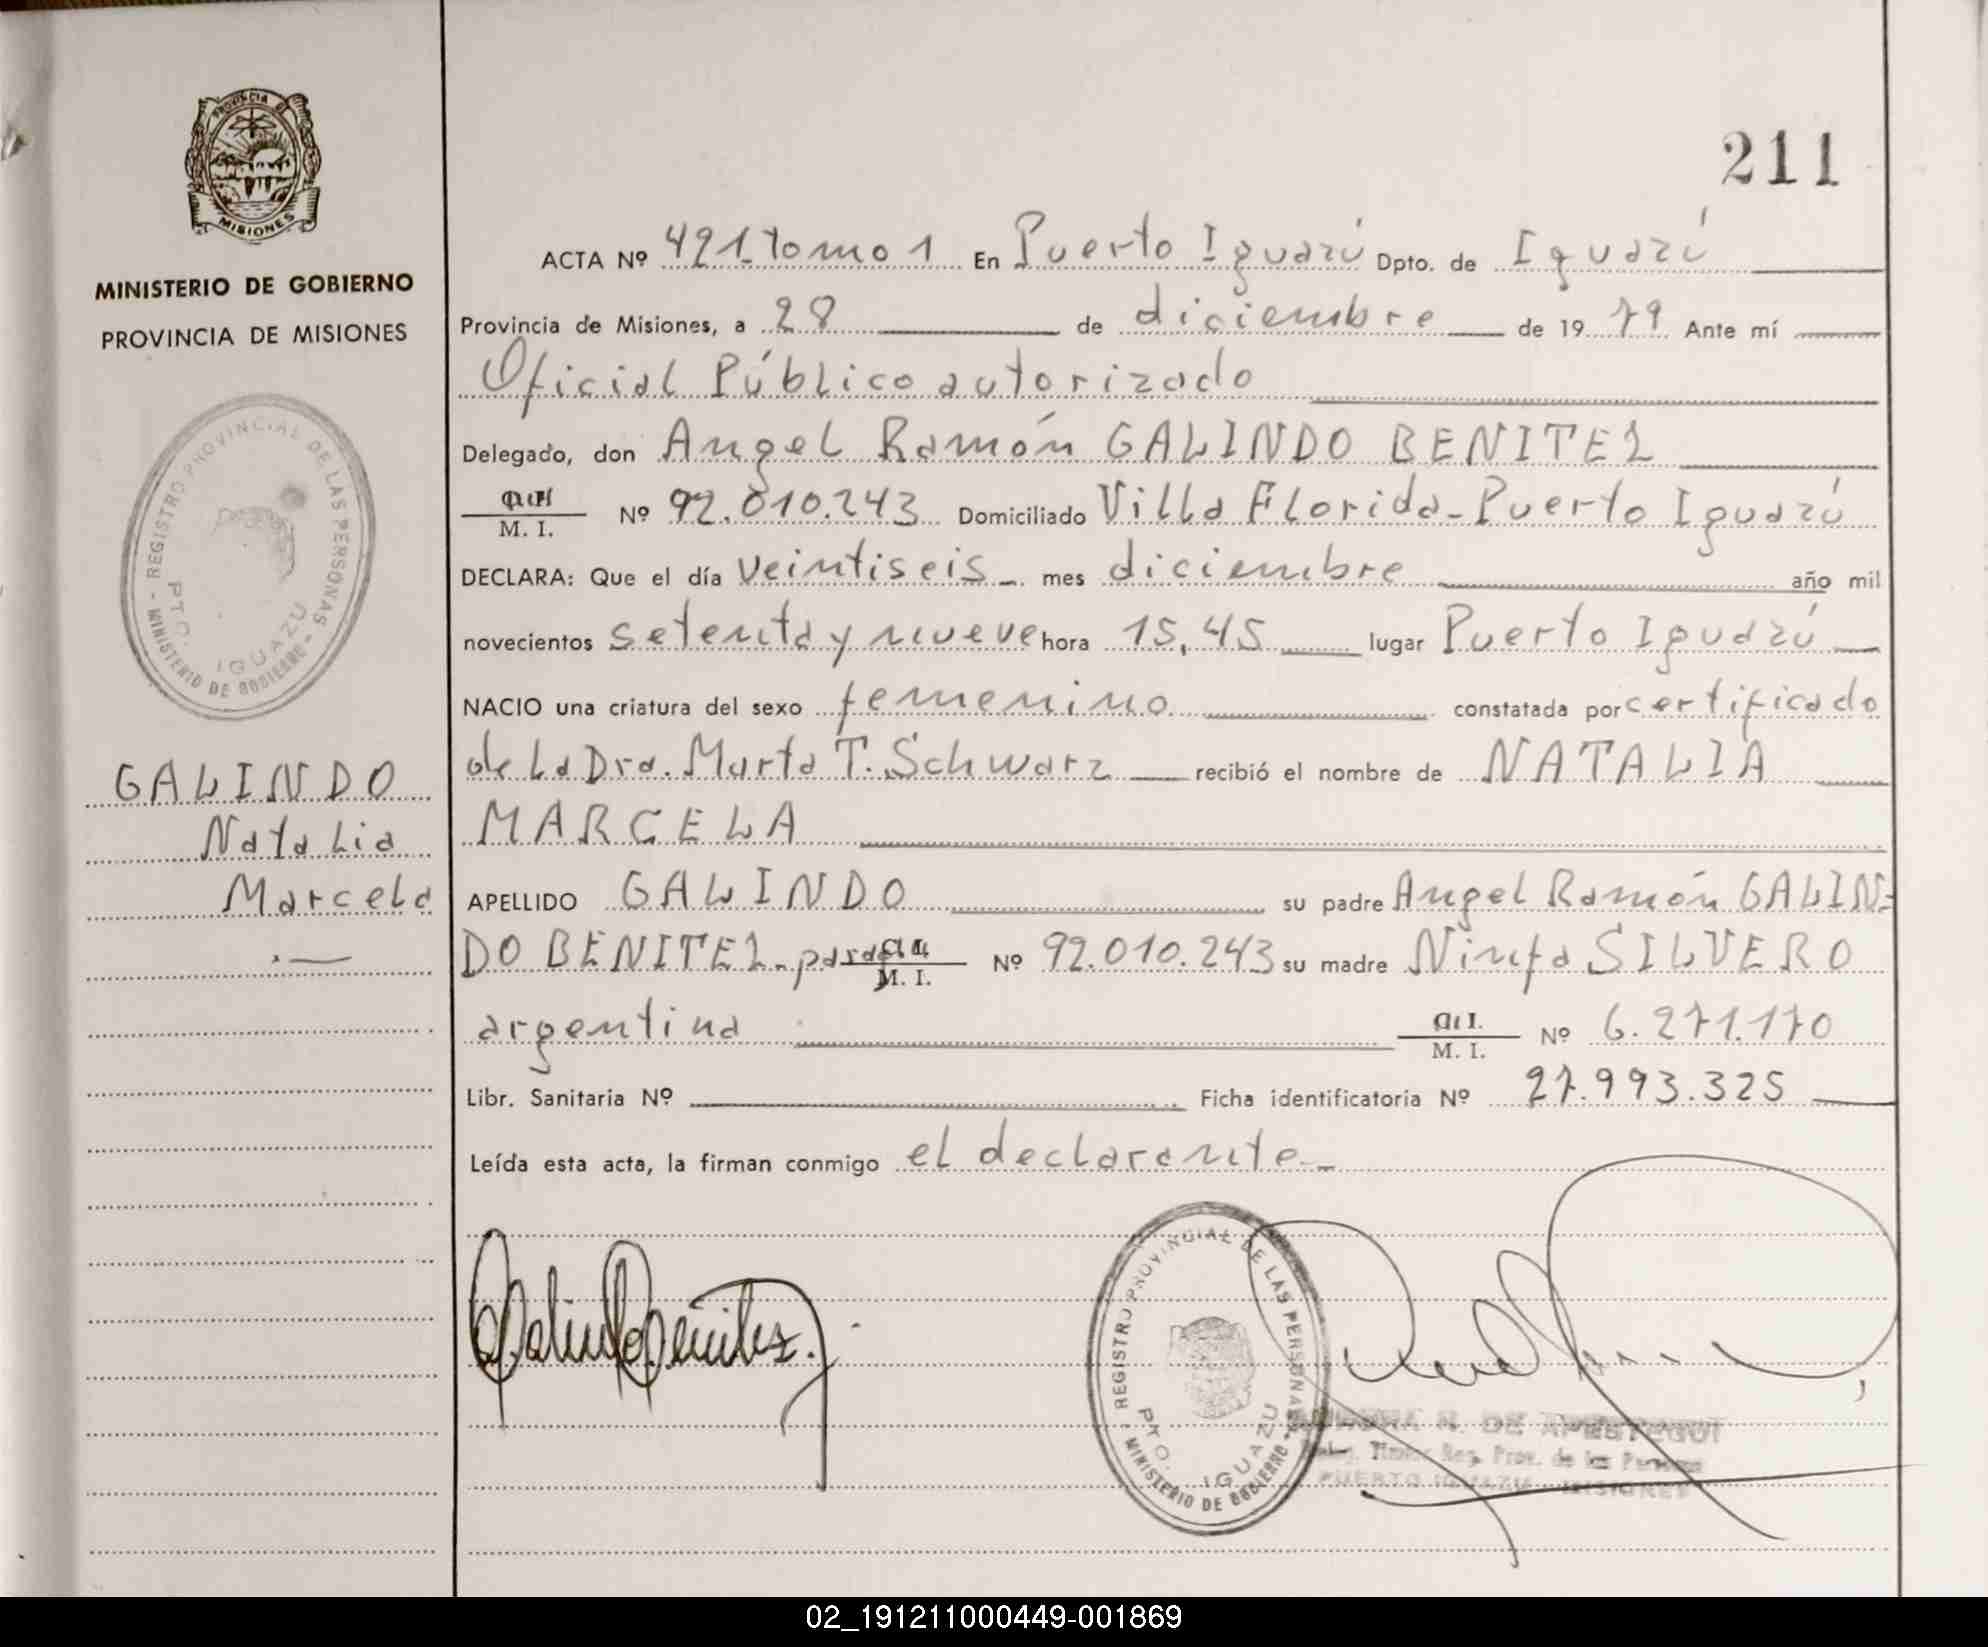 PROVINCIA DE
MISIONES
MINISTERIO DE GOBIERNO
PROVINCIA DE MISIONES
REGISTRO PROVINCIAL DE LAS PERSONAS - MINISTERIO DE GOBIERNO -
PTO. IGUAZU
GALINDO
Natalia
Marcela
211
ACTA Nº 421 tomo 1 En Puerto Iguazú Dpto. de Iguazú
Provincia de Misiones, a 28 de diciembre de 19 79 Ante mí
Oficial Público autorizado
Delegado, don Angel Ramón GALINDO BENITEZ
M. I. Nº 92.010.243 Domiciliado Villa Florida - Puerto Iguazú
DECLARA: Que el día veintiseis - mes diciembre año mil
novecientos setenta y nueve hora 15,45 lugar Puerto Iguazú
NACIO una criatura del sexo femenino constatada por certificado
de la Dra. Marta T. Schwarz recibió el nombre de NATALIA
MARCELA
APELLIDO GALINDO su padre Angel Ramón GALIN=
DO BENITEZ - M. I. Nº 92.010.243 su madre Ninfa SILVERO
argentina M. I. Nº 6.271.170
Libr. Sanitaria Nº Ficha identificatoria Nº 27.993.325
Leída esta acta, la firman conmigo el declarante -
Galindo Benitez
REGISTRO PROVINCIAL DE LAS PERSONAS - MINISTERIO DE GOBIERNO -
PTO. IGUAZU
DE APESTEGUI
Reg. Prov. de las Personas
PUERTO IGUAZU - MISIONES
02_191211000449-001869